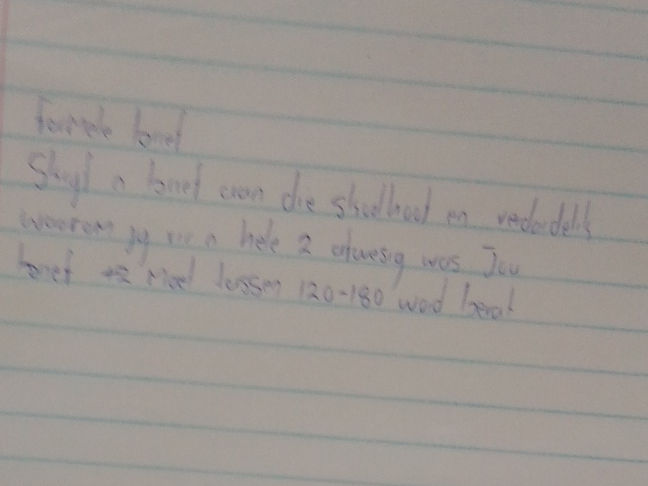 Formele brief
Skryf n brief aan die skoolhoof en verduidelik
waarom jy vir n hele 2 afwesig was Jou
brief moet tussen 120-180 word beval